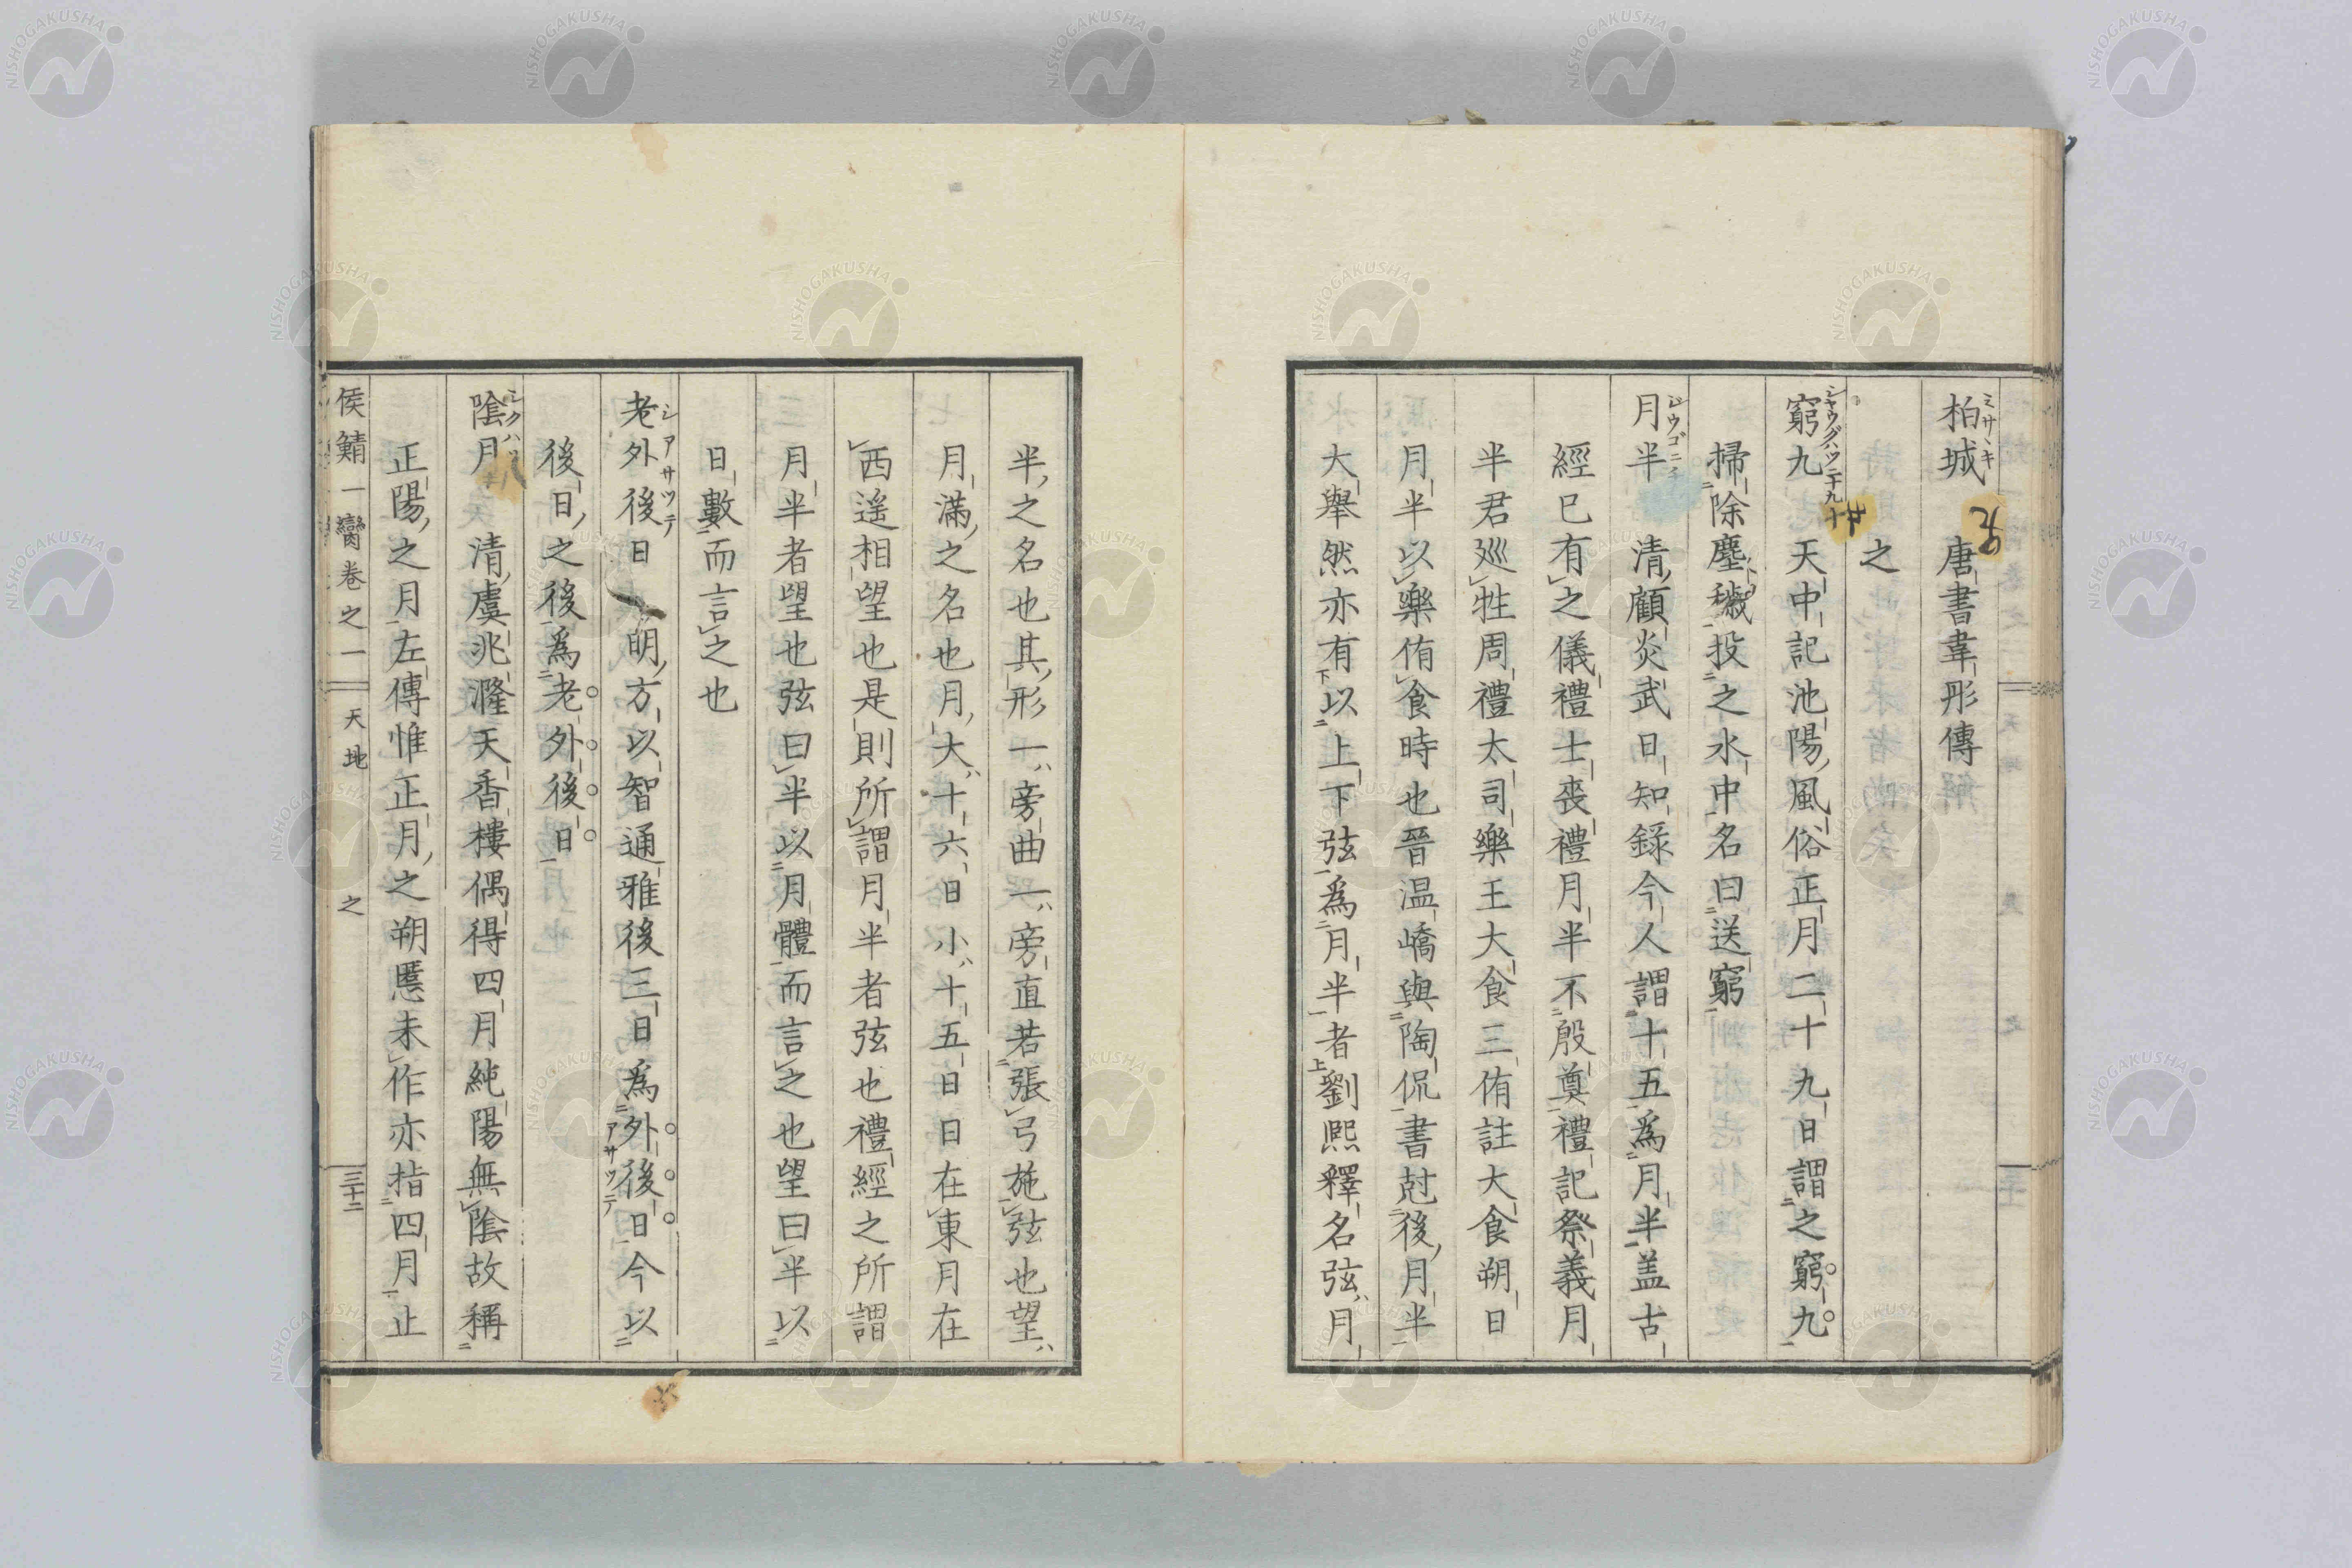 柏城 唐書韋彤傳
之
窮九 天中記池陽風俗正月二十九日謂之窮九
掃除塵穢投之水中名曰送窮
月半 清顧炎武日知錄今人謂十五為月半盖古
經已有之儀禮士喪禮月半不殷奠禮記祭義月
半君巡牲周禮大司樂王大食三侑註大食朔日
月半以樂侑食時也晉温嶠與陶侃書尅後月半
大舉然亦有以上下弦為月半者劉熙釋名弦月
半之名也其形一旁曲一旁直若張弓施弦也望
月滿之名也月大十六日小十五日日在東月在
西遙相望也是則所謂月半者弦也禮經之所謂
月半者望也弦曰半以月體而言之也望曰半以
日數而言之也
老外後日 明方以智通雅後三日為外後日今以
後日之後為老外後日
陰月 清虞兆漋天香樓偶得四月純陽無陰故稱
正陽之月左傳惟正月之朔慝未作亦指四月止
侯鯖一臠卷之一 天地 之 三十二
NISHOGAKUSHA